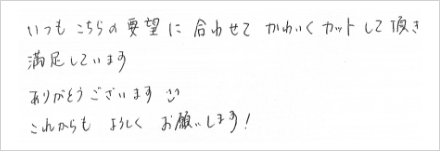 いつも こちらの 要望 に 合わせて かわいく カット して 頂き
満足しています
ありがとうございます
これからも よろしく お願いします!